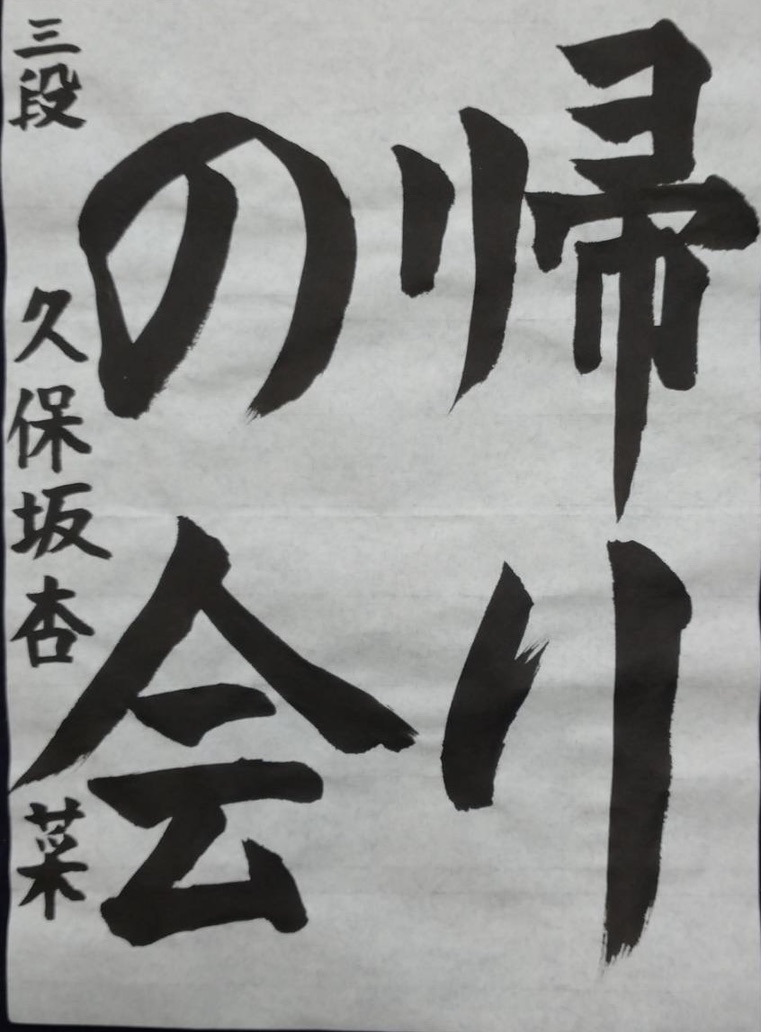 帰り
の会
三段 久保坂杏菜